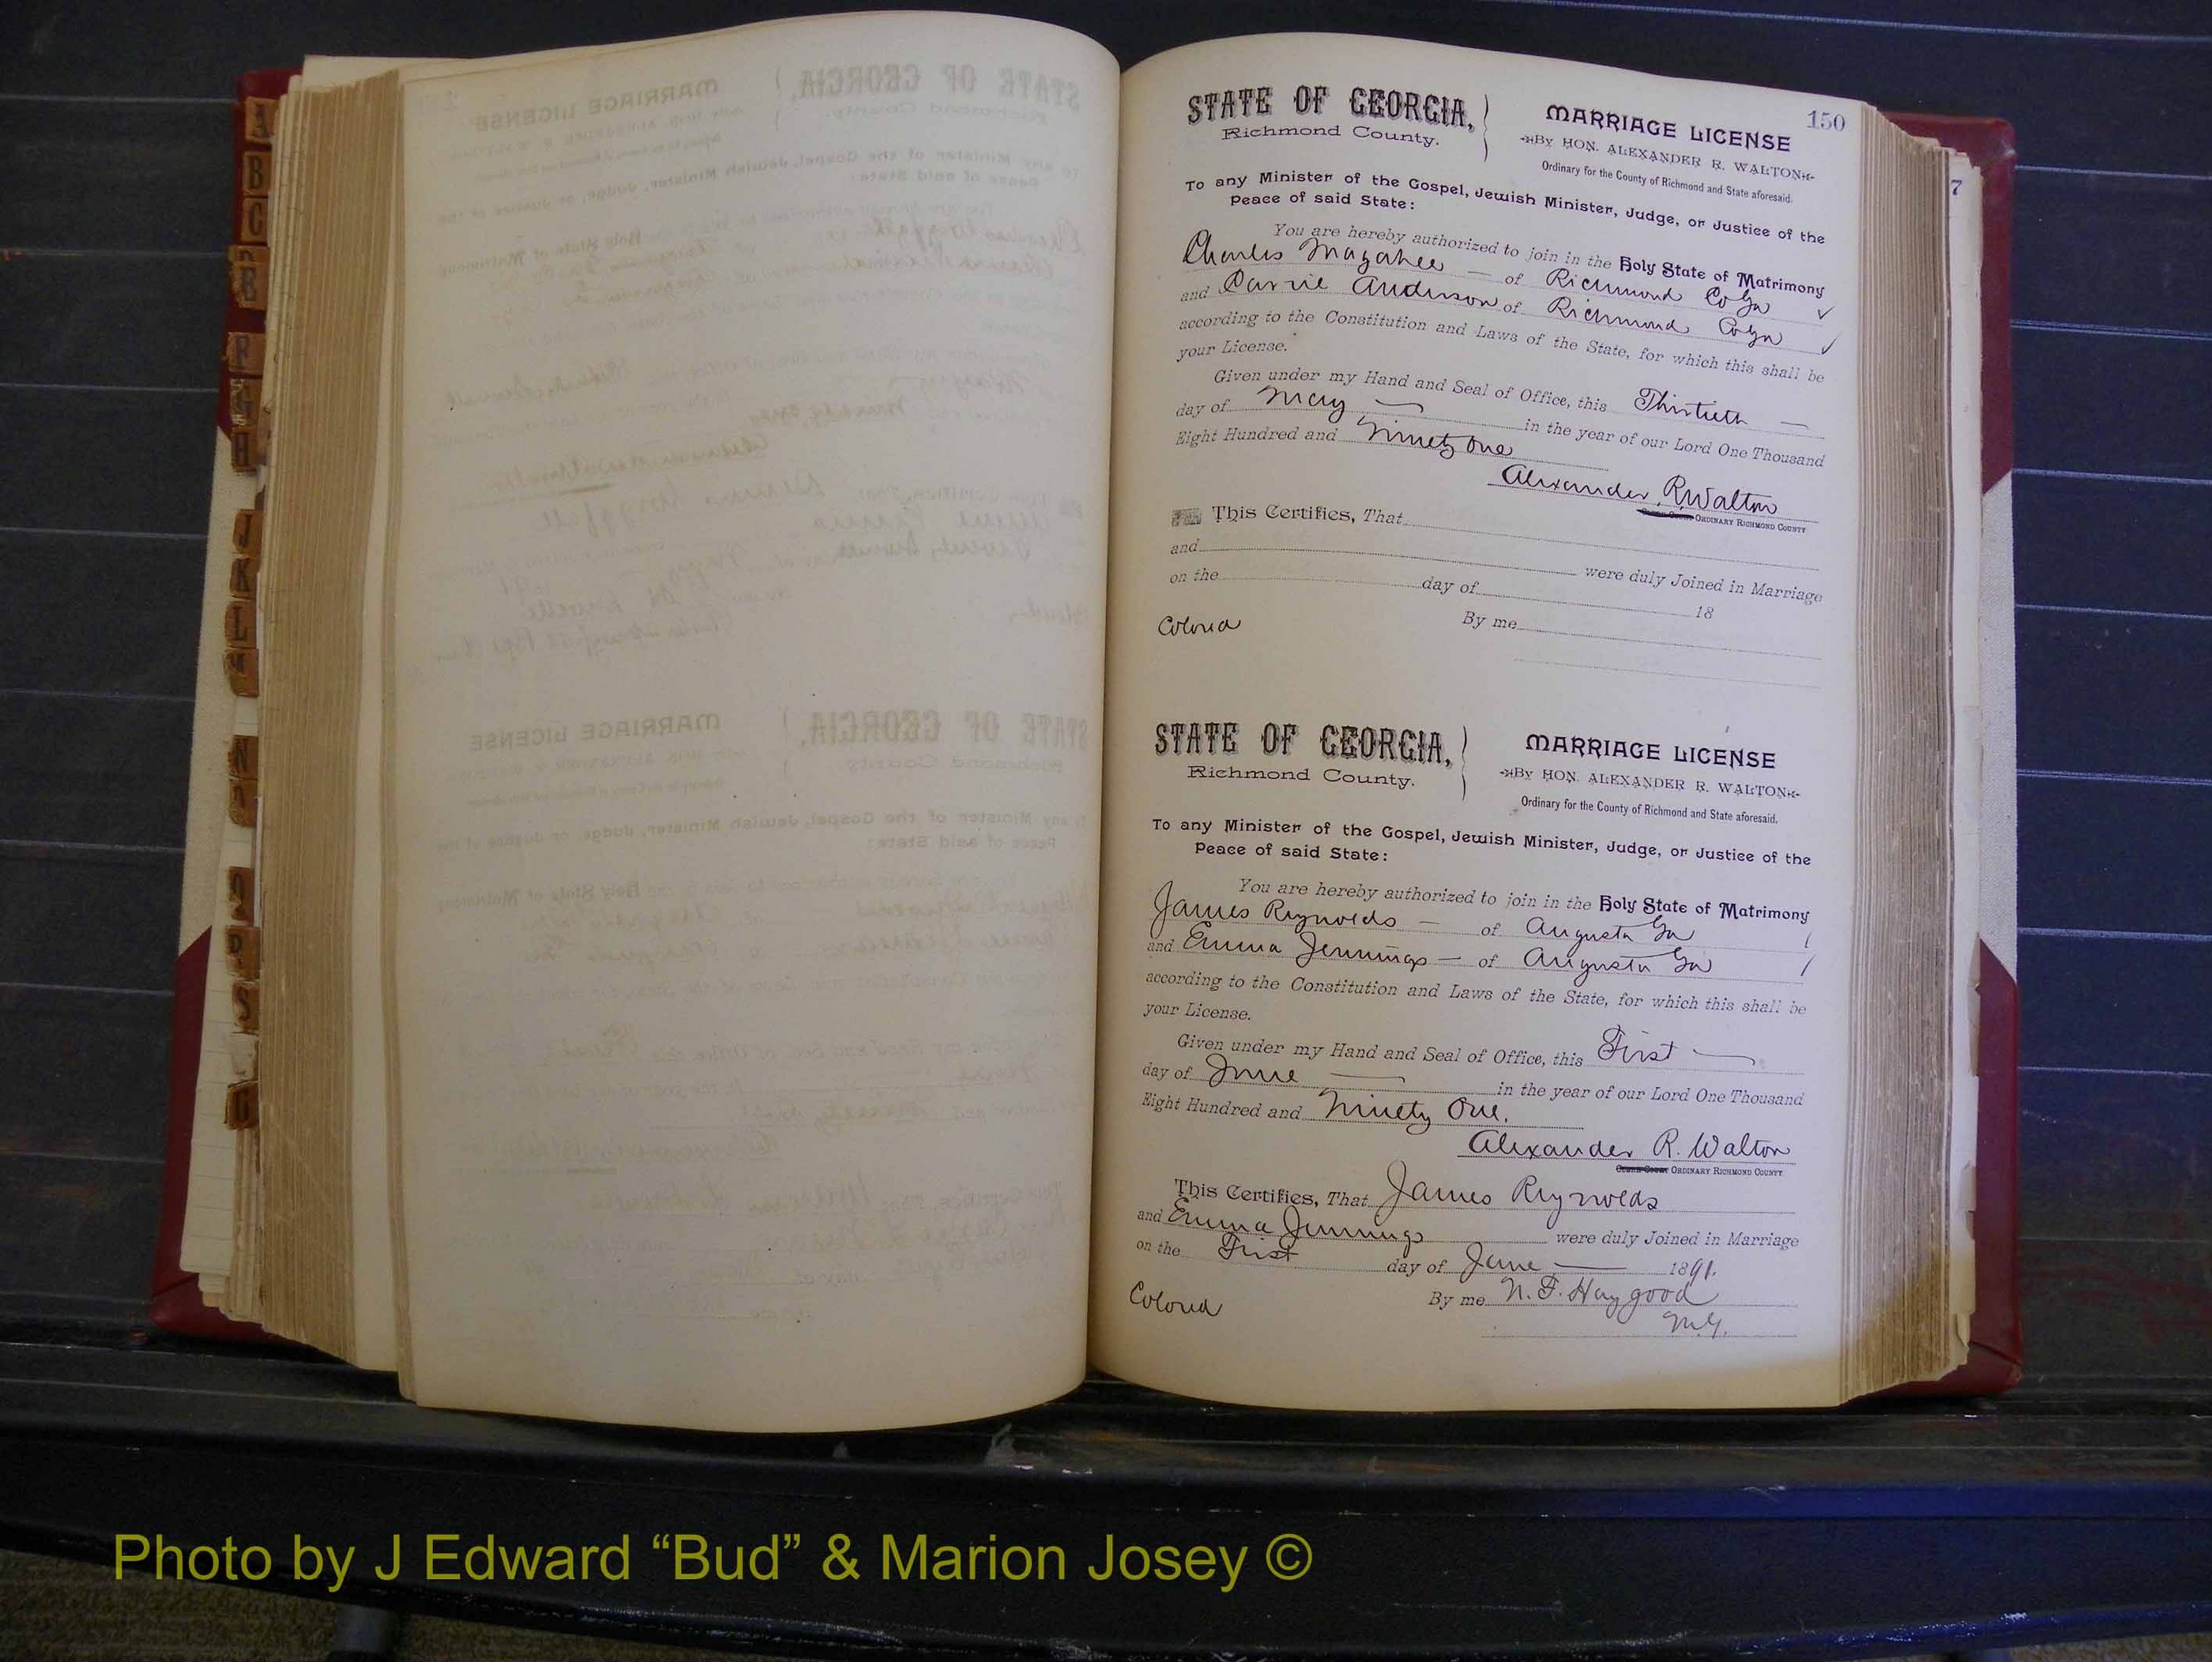 A
B
C
F
G
H
J
K
L
M
N
O
R
S
150
7
STATE OF GEORGIA,
Richmond County.
MARRIAGE LICENSE
By HON. ALEXANDER R. WALTON
Ordinary for the County of Richmond and State aforesaid.
To any Minister of the Gospel, Jewish Minister, Judge, or Justice of the
Peace of said State:
You are hereby authorized to join in the Holy State of Matrimony
Charles Magahee — of Richmond Co Ga ✓
and Carrie Anderson of Richmond Co Ga ✓
according to the Constitution and Laws of the State, for which this shall be
your License.
Given under my Hand and Seal of Office, this Thirtieth —
day of May — in the year of our Lord One Thousand
Eight Hundred and Ninety One
Alexander R. Walton
ORDINARY RICHMOND COUNTY
This Certifies, That
and were duly Joined in Marriage
on the day of 18
Colored By me
STATE OF GEORGIA,
Richmond County.
MARRIAGE LICENSE
By HON. ALEXANDER R. WALTON
Ordinary for the County of Richmond and State aforesaid.
To any Minister of the Gospel, Jewish Minister, Judge, or Justice of the
Peace of said State:
You are hereby authorized to join in the Holy State of Matrimony
James Reynolds — of Augusta Ga
and Emma Jennings — of Augusta Ga
according to the Constitution and Laws of the State, for which this shall be
your License.
Given under my Hand and Seal of Office, this First —
day of June — in the year of our Lord One Thousand
Eight Hundred and Ninety One.
Alexander R. Walton
ORDINARY RICHMOND COUNTY
This Certifies, That James Reynolds
and Emma Jennings were duly Joined in Marriage
on the First day of June — 1891.
Colored By me N. F. Haygood
M.G.
Photo by J Edward “Bud” & Marion Josey ©